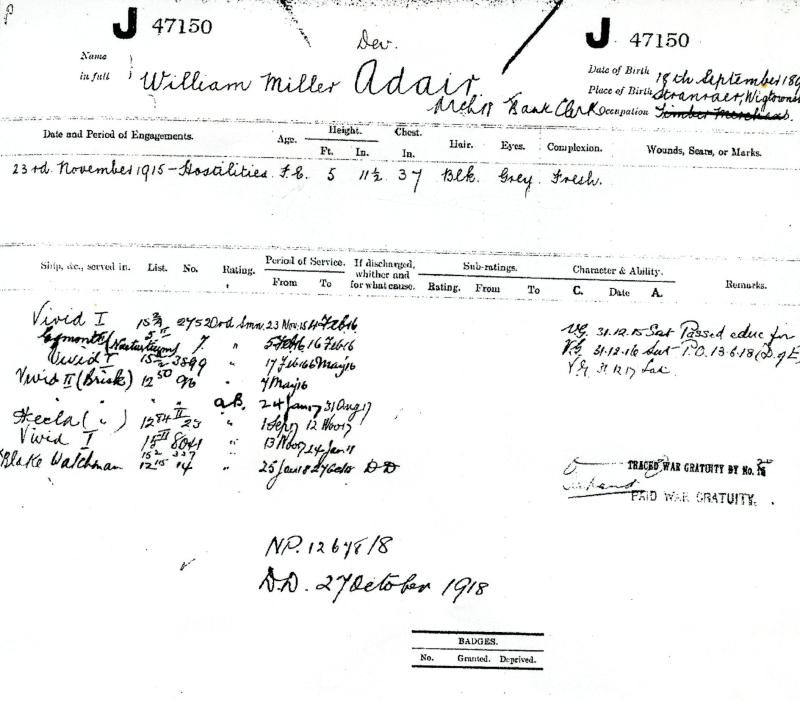 J 47150
Dev.
J 47150
Name in full
William Miller Adair
Date of Birth 18th September 18
Place of Birth Stranraer, Wigtowns
Bank Clerk Occupation Timber
Date and Period of Engagements. Age. Height. Ft. In. Chest. In. Hair. Eyes. Complexion. Wounds, Scars, or Marks.
23rd. November 1915 – Hostilities. 5 11½ 37 Blk. Grey. Fresh.
Ship, &c., served in. List. No. Rating. Period of Service. From To If discharged, whither and for what cause. Sub-ratings. Rating. From To Character & Ability. C. Date A. Remarks.
Vivid I 2752 Ord. Smn. 23 Nov. 15 4 Feb 16 V.G. 31.12.15 Sat Passed educ for
5 Feb 16 16 Feb 16 V.G. 31.12.16 Sat P.O. 13.6.18 (D. of E)
Vivid I 3899 " 17 Feb 16 6 May 16 V.G. 31.12.17 Sat.
Vivid II (Brisk) " 7 May 16
" " A.B. 24 Jan 17 31 Aug 17
Hecla ( " ) 23 " 1 Sep 17 12 Nov 17
Vivid I 8041 " 13 Nov 17 24 Jan 18
Blake Watchman 14 " 25 Jan 18 27 Octr DD
TRACED WAR GRATUITY BY No.
PAID WAR GRATUITY.
NP. 12678/18
DD. 27 October 1918
BADGES.
No. Granted. Deprived.